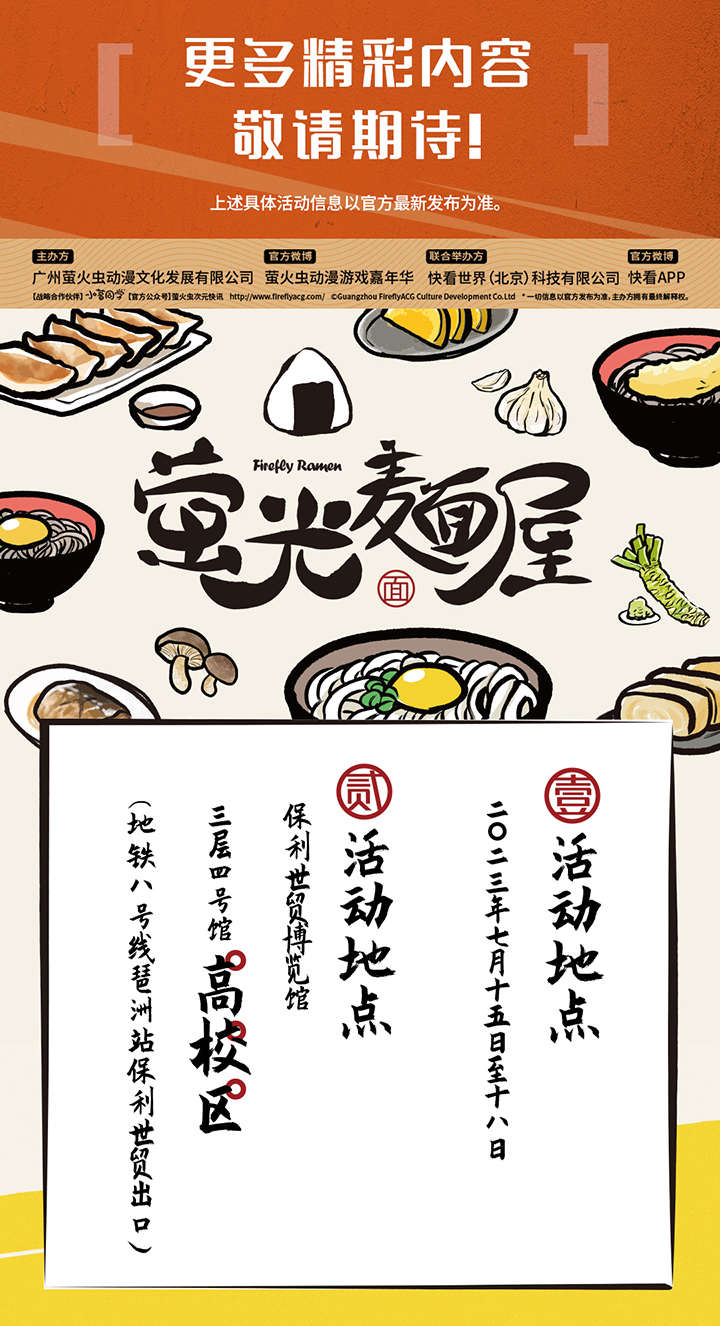 更多精彩内容
敬请期待!
上述具体活动信息以官方最新发布为准。
主办方
广州萤火虫动漫文化发展有限公司
官方微博
萤火虫动漫游戏嘉年华
联合举办方
快看世界(北京)科技有限公司
官方微博
快看APP
【战略合作伙伴】小高同学【官方公众号】萤火虫次元快讯 http://www.fireflyacg.com/ ©Guangzhou FireflyACG Culture Development Co.Ltd *一切信息以官方发布为准,主办方拥有最终解释权。
Firefly Ramen
萤光麺屋
面
壹
活动地点
二〇二三年七月十五日至十八日
贰
活动地点
保利世贸博览馆
三层四号馆高校区
(地铁八号线琶洲站保利世贸出口)